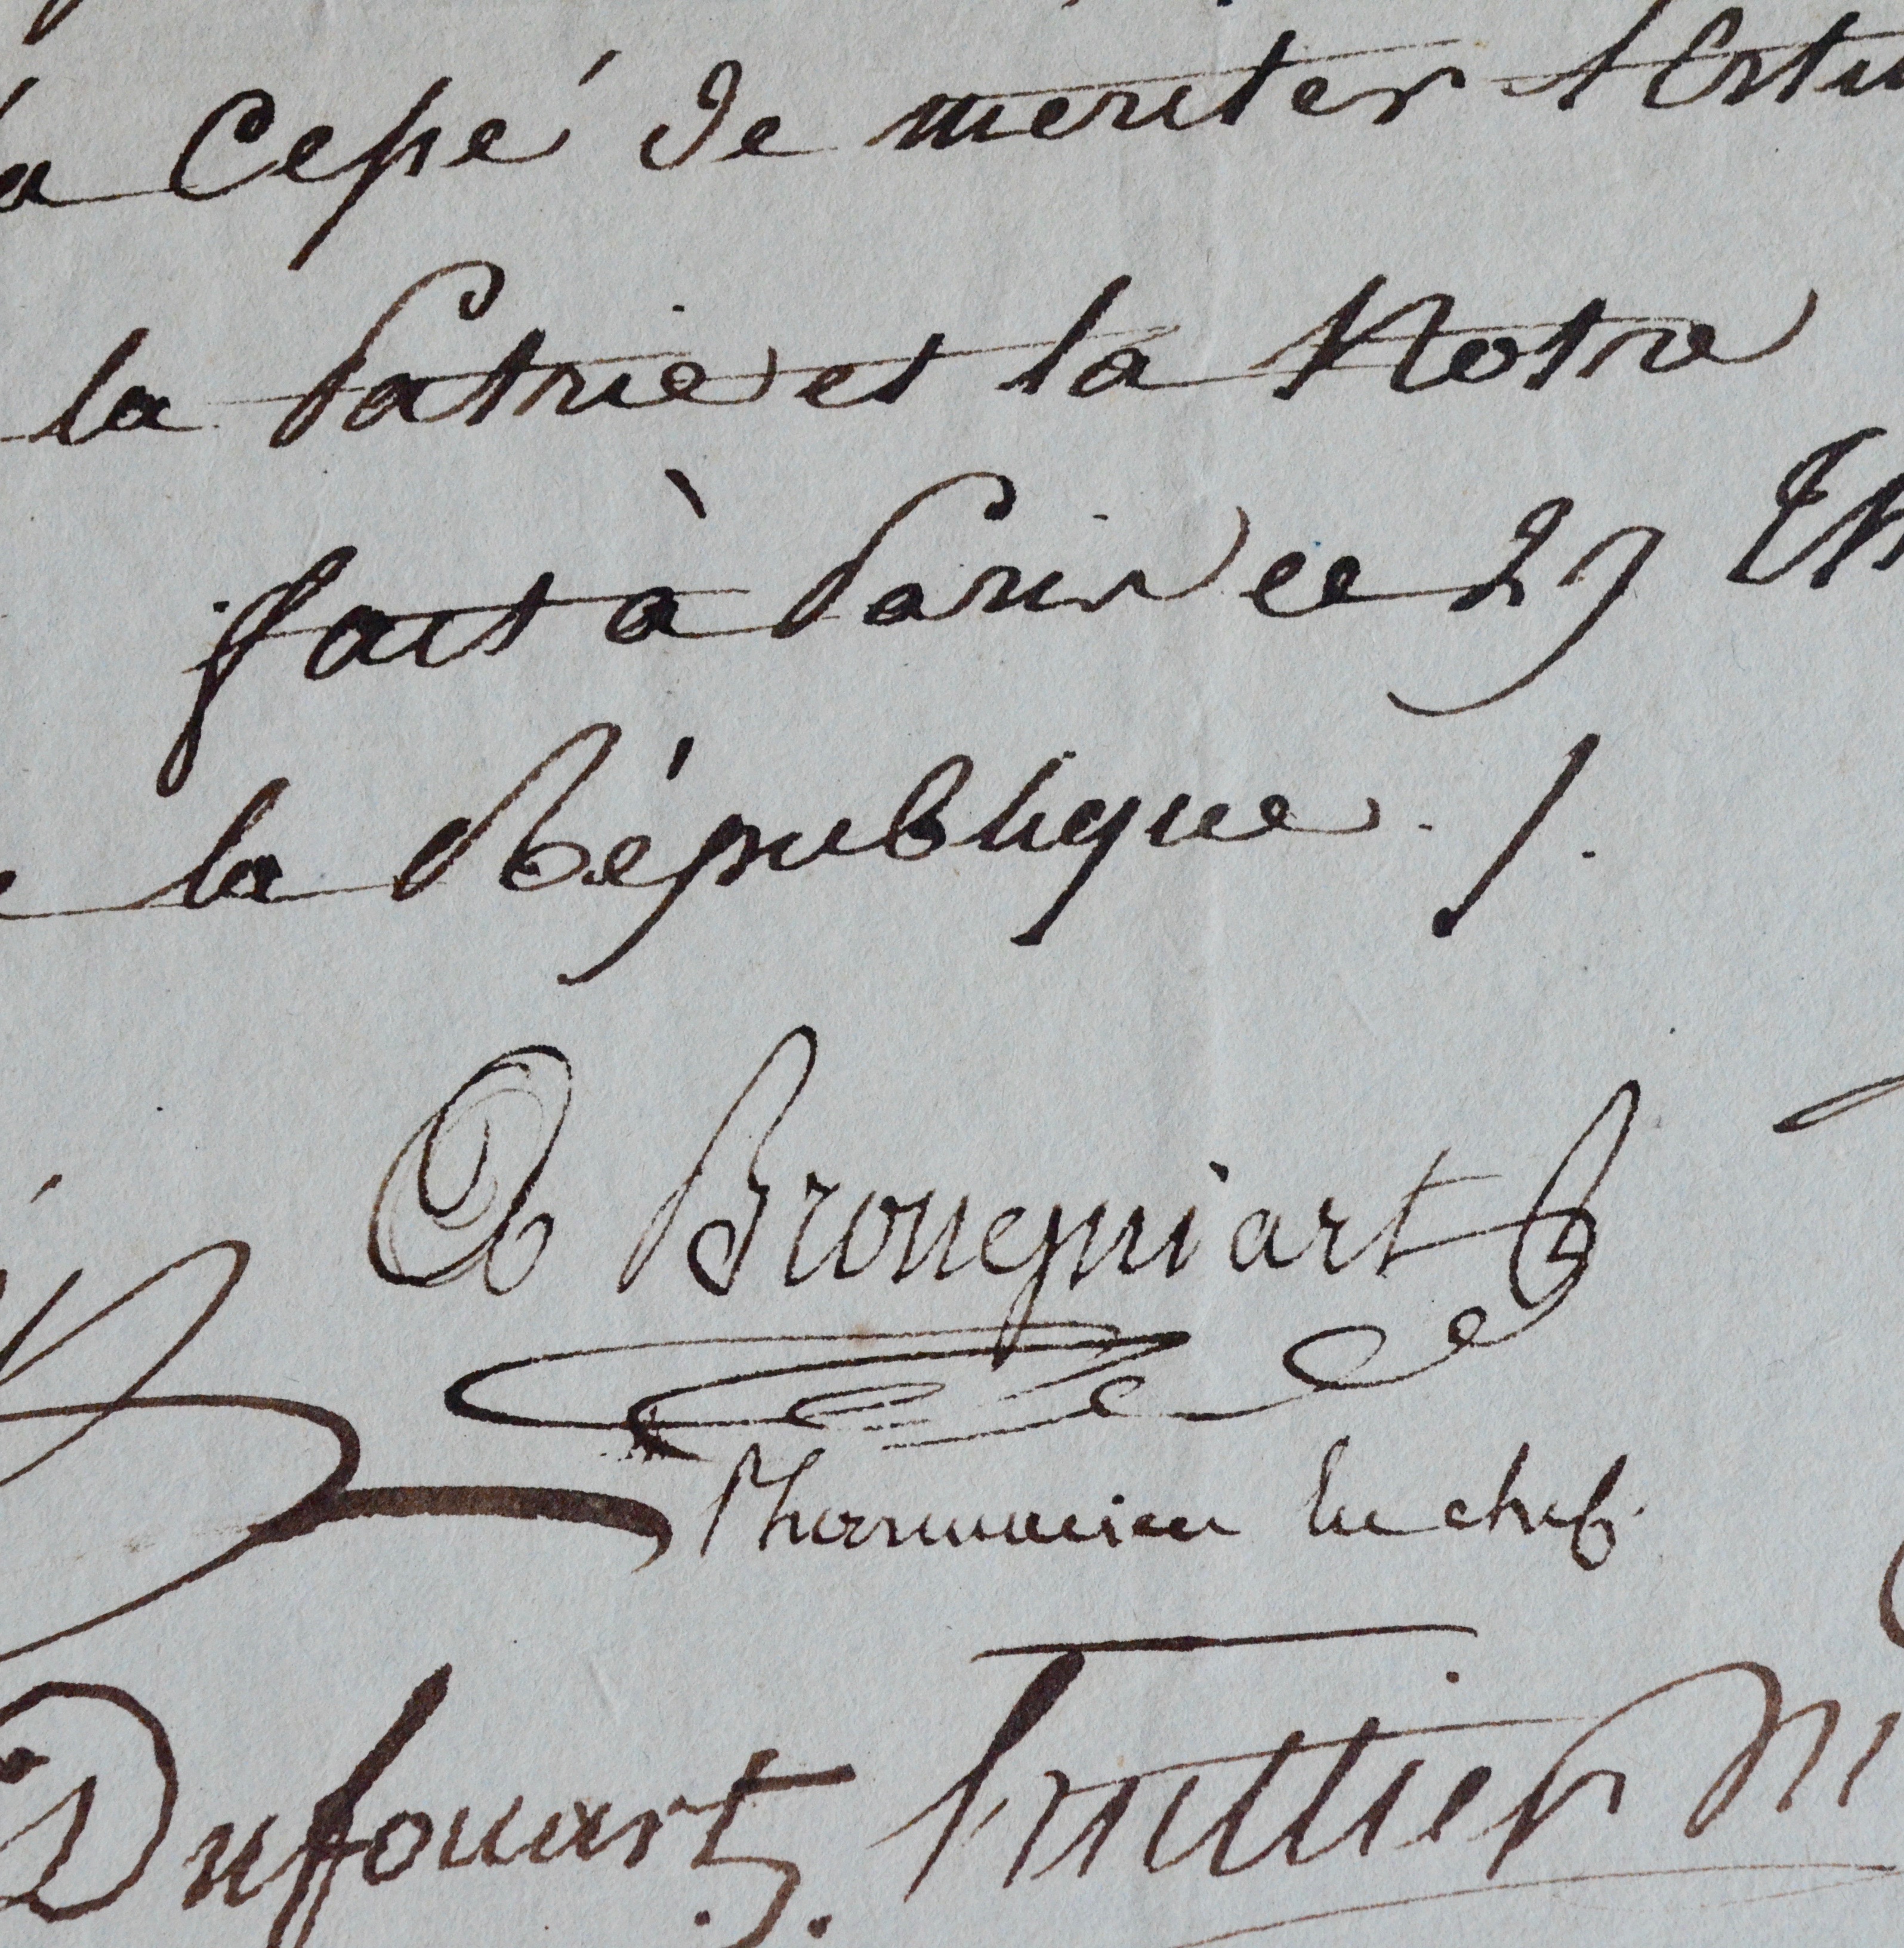 a Cessé de meriter l'Esti
la Patrie et la Notre
fait à Paris ce 27 Th
la République ./.
A Brongniart
Pharmacien En chef.
Dufouart